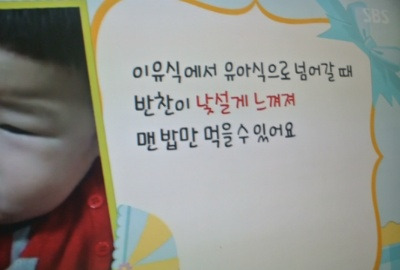 SBS
이유식에서 유아식으로 넘어갈 때
반찬이 낯설게 느껴져
맨 밥만 먹을 수 있어요